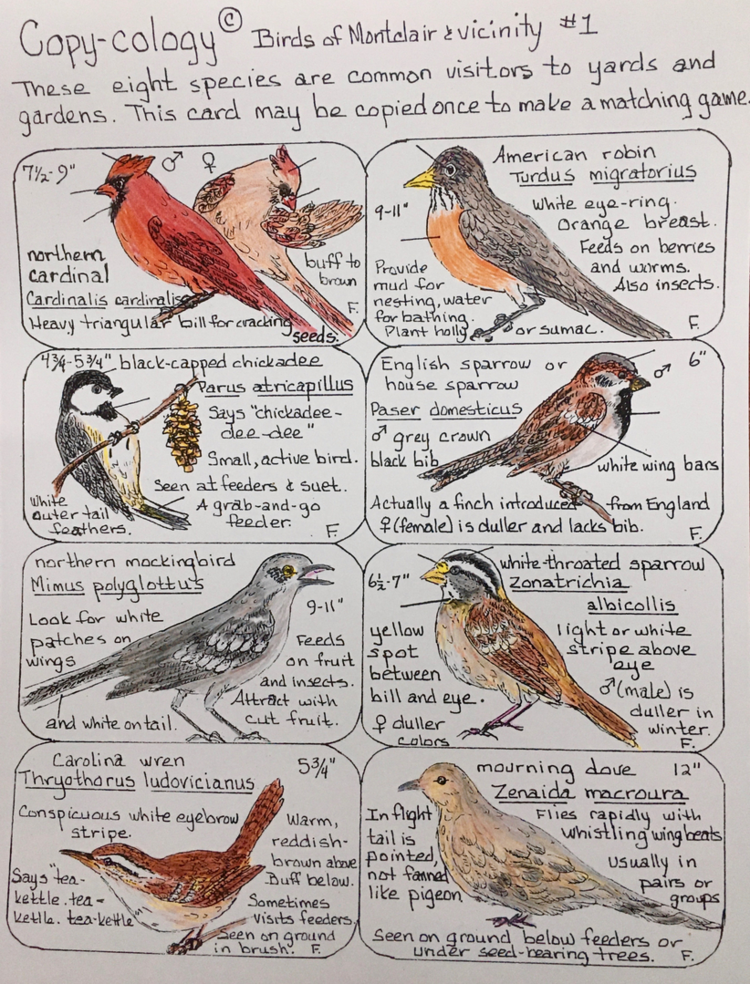 Copy-cology © Birds of Montclair & vicinity #1
These eight species are common visitors to yards and
gardens. This card may be copied once to make a matching game.
7½-9" ♂ ♀
northern
cardinal
Cardinalis cardinalis
buff to
brown
F.
Heavy triangular bill for cracking
seeds.
American robin
Turdus migratorius
9-11"
White eye-ring.
Orange breast.
Feeds on berries
and worms.
Also insects.
Provide
mud for
nesting, water
for bathing.
Plant holly or sumac.
F.
4¾-5¾" black-capped chickadee
Parus atricapillus
Says "chickadee-
dee-dee"
Small, active bird.
Seen at feeders & suet.
A grab-and-go
feeder.
White
outer tail
feathers.
F.
English sparrow or
house sparrow
♂ 6"
Paser domesticus
♂ grey crown
black bib
white wing bars
Actually a finch introduced from England
♀ (female) is duller and lacks bib.
F.
northern mockingbird
Mimus polyglottus
9-11"
Look for white
patches on
wings
and white on tail.
Feeds
on fruit
and insects.
Attract with
cut fruit.
F.
6½-7"
white-throated sparrow
Zonatrichia
albicollis
yellow
spot
between
bill and eye.
♀ duller
colors
light or white
stripe above
eye
♂ (male) is
duller in
winter.
F.
Carolina wren 5¾"
Thryothorus ludovicianus
Conspicuous white eyebrow
stripe.
Says "tea-
kettle. tea-
kettle. tea-kettle
Warm,
reddish-
brown above
Buff below.
Sometimes
visits feeders.
Seen on ground
in brush. F.
mourning dove 12"
Zenaida macroura
In flight
tail is
pointed,
not fanned
like pigeon
Flies rapidly with
whistling wingbeats
usually in
pairs or
groups
Seen on ground below feeders or
under seed-bearing trees. F.